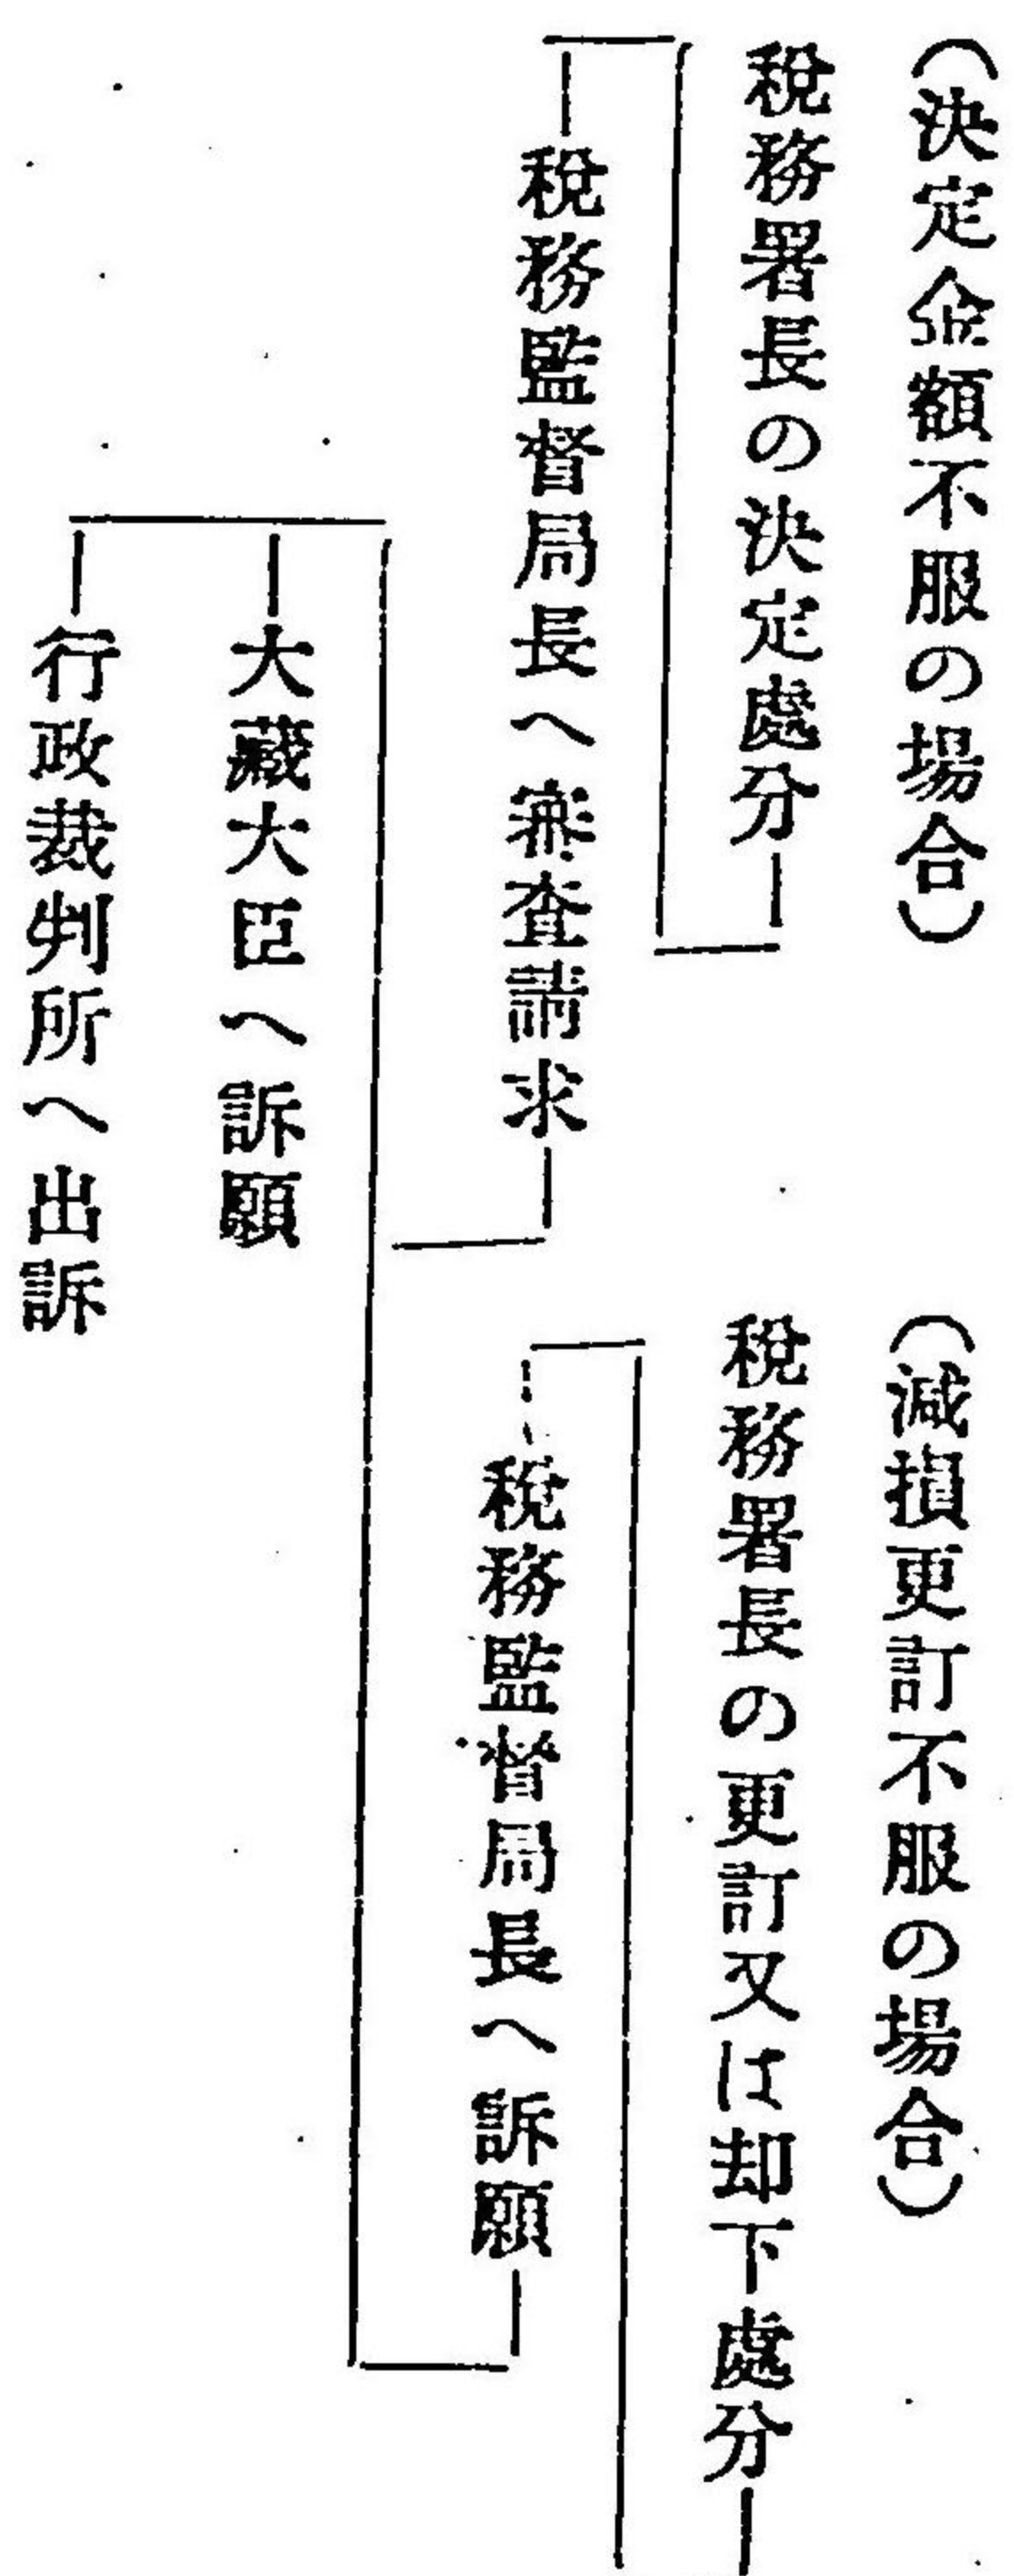 (決定金額不服の場合)
稅務署長の決定處分
稅務監督局長へ審査請求
(減損更訂不服の場合)
稅務署長の更訂又は却下處分
稅務監督局長へ訴願
大藏大臣へ訴願
行政裁判所へ出訴